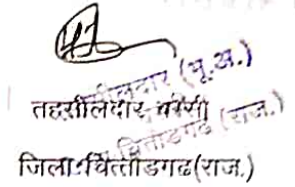 तहसीलदार (भू.अ.)
तहसीलदार बस्सी
चित्तौडगढ (राज.)
जिला-चित्तौडगढ(राज.)